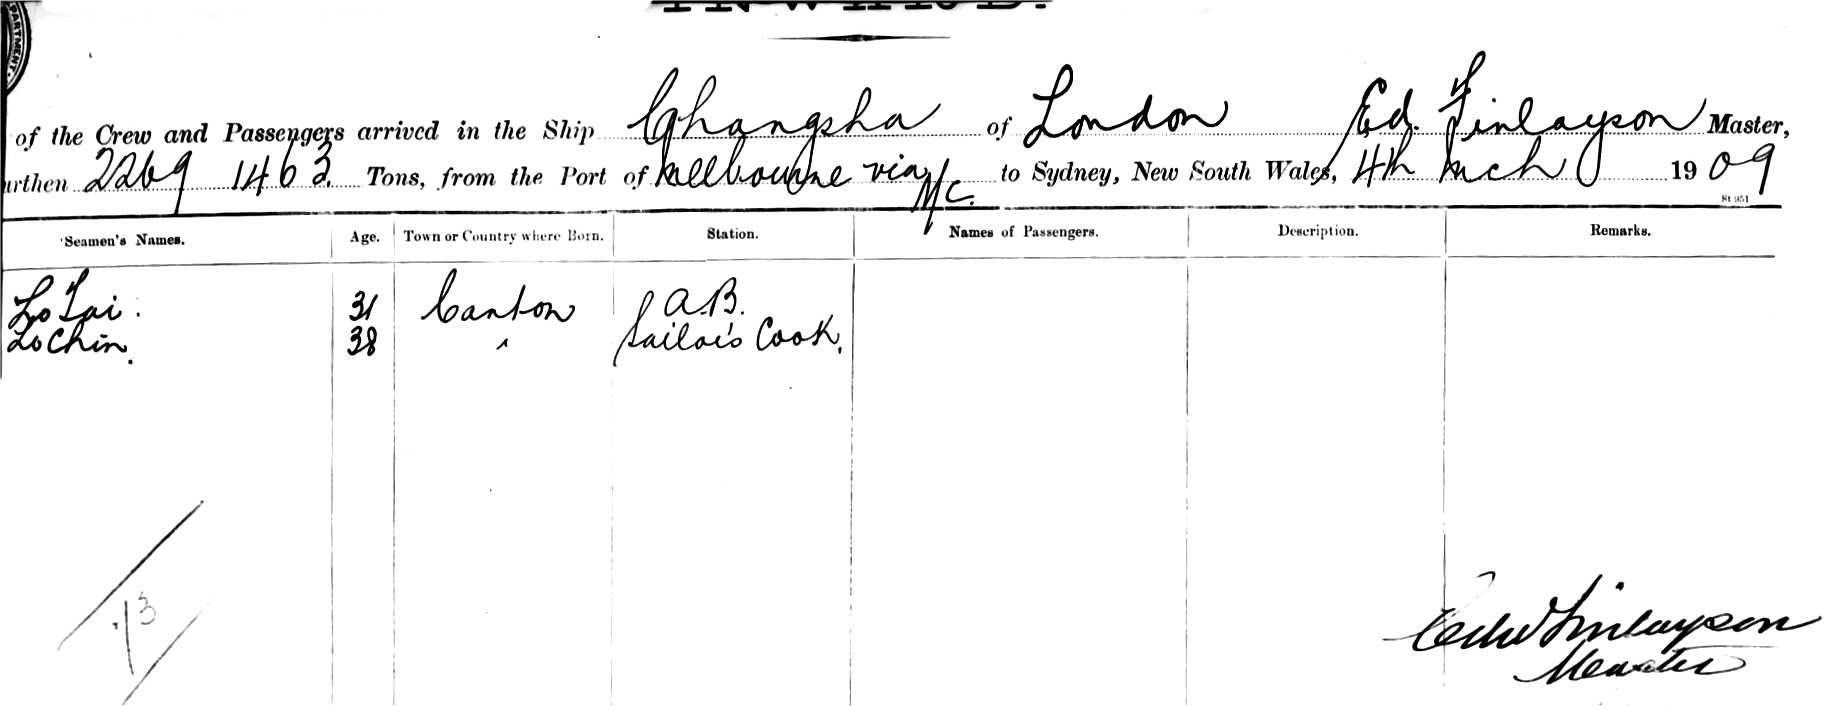 INWARD.
PARTMENT.
of the Crew and Passengers arrived in the Ship Changsha of London Ed. Finlayson Master,
urthen 2269 1463 Tons, from the Port of Melbourne via N/C. to Sydney, New South Wales, 4th Mch 1909
St 951
Seamen's Names. Age. Town or Country where Born. Station. Names of Passengers. Description. Remarks.
Lo Tai 31 Canton A.B.
Lo Chin. 38 " Sailor's Cook.
73
Edw Finlayson
Master